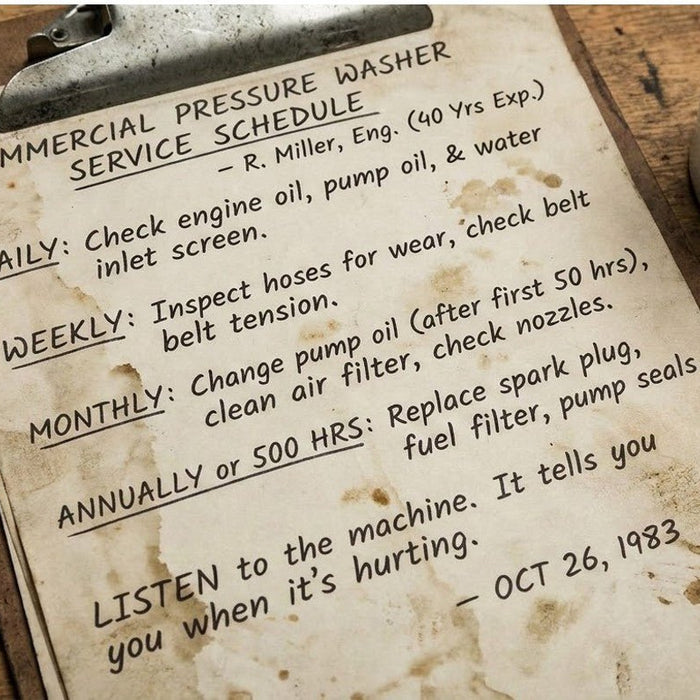 MMERCIAL PRESSURE WASHER
SERVICE SCHEDULE
– R. Miller, Eng. (40 Yrs Exp.)
AILY: Check engine oil, pump oil, & water
inlet screen.
WEEKLY: Inspect hoses for wear, check belt
belt tension.
MONTHLY: Change pump oil (after first 50 hrs),
clean air filter, check nozzles.
ANNUALLY or 500 HRS: Replace spark plug,
fuel filter, pump seals
LISTEN to the machine. It tells you
you when it's hurting.
– OCT 26, 1983